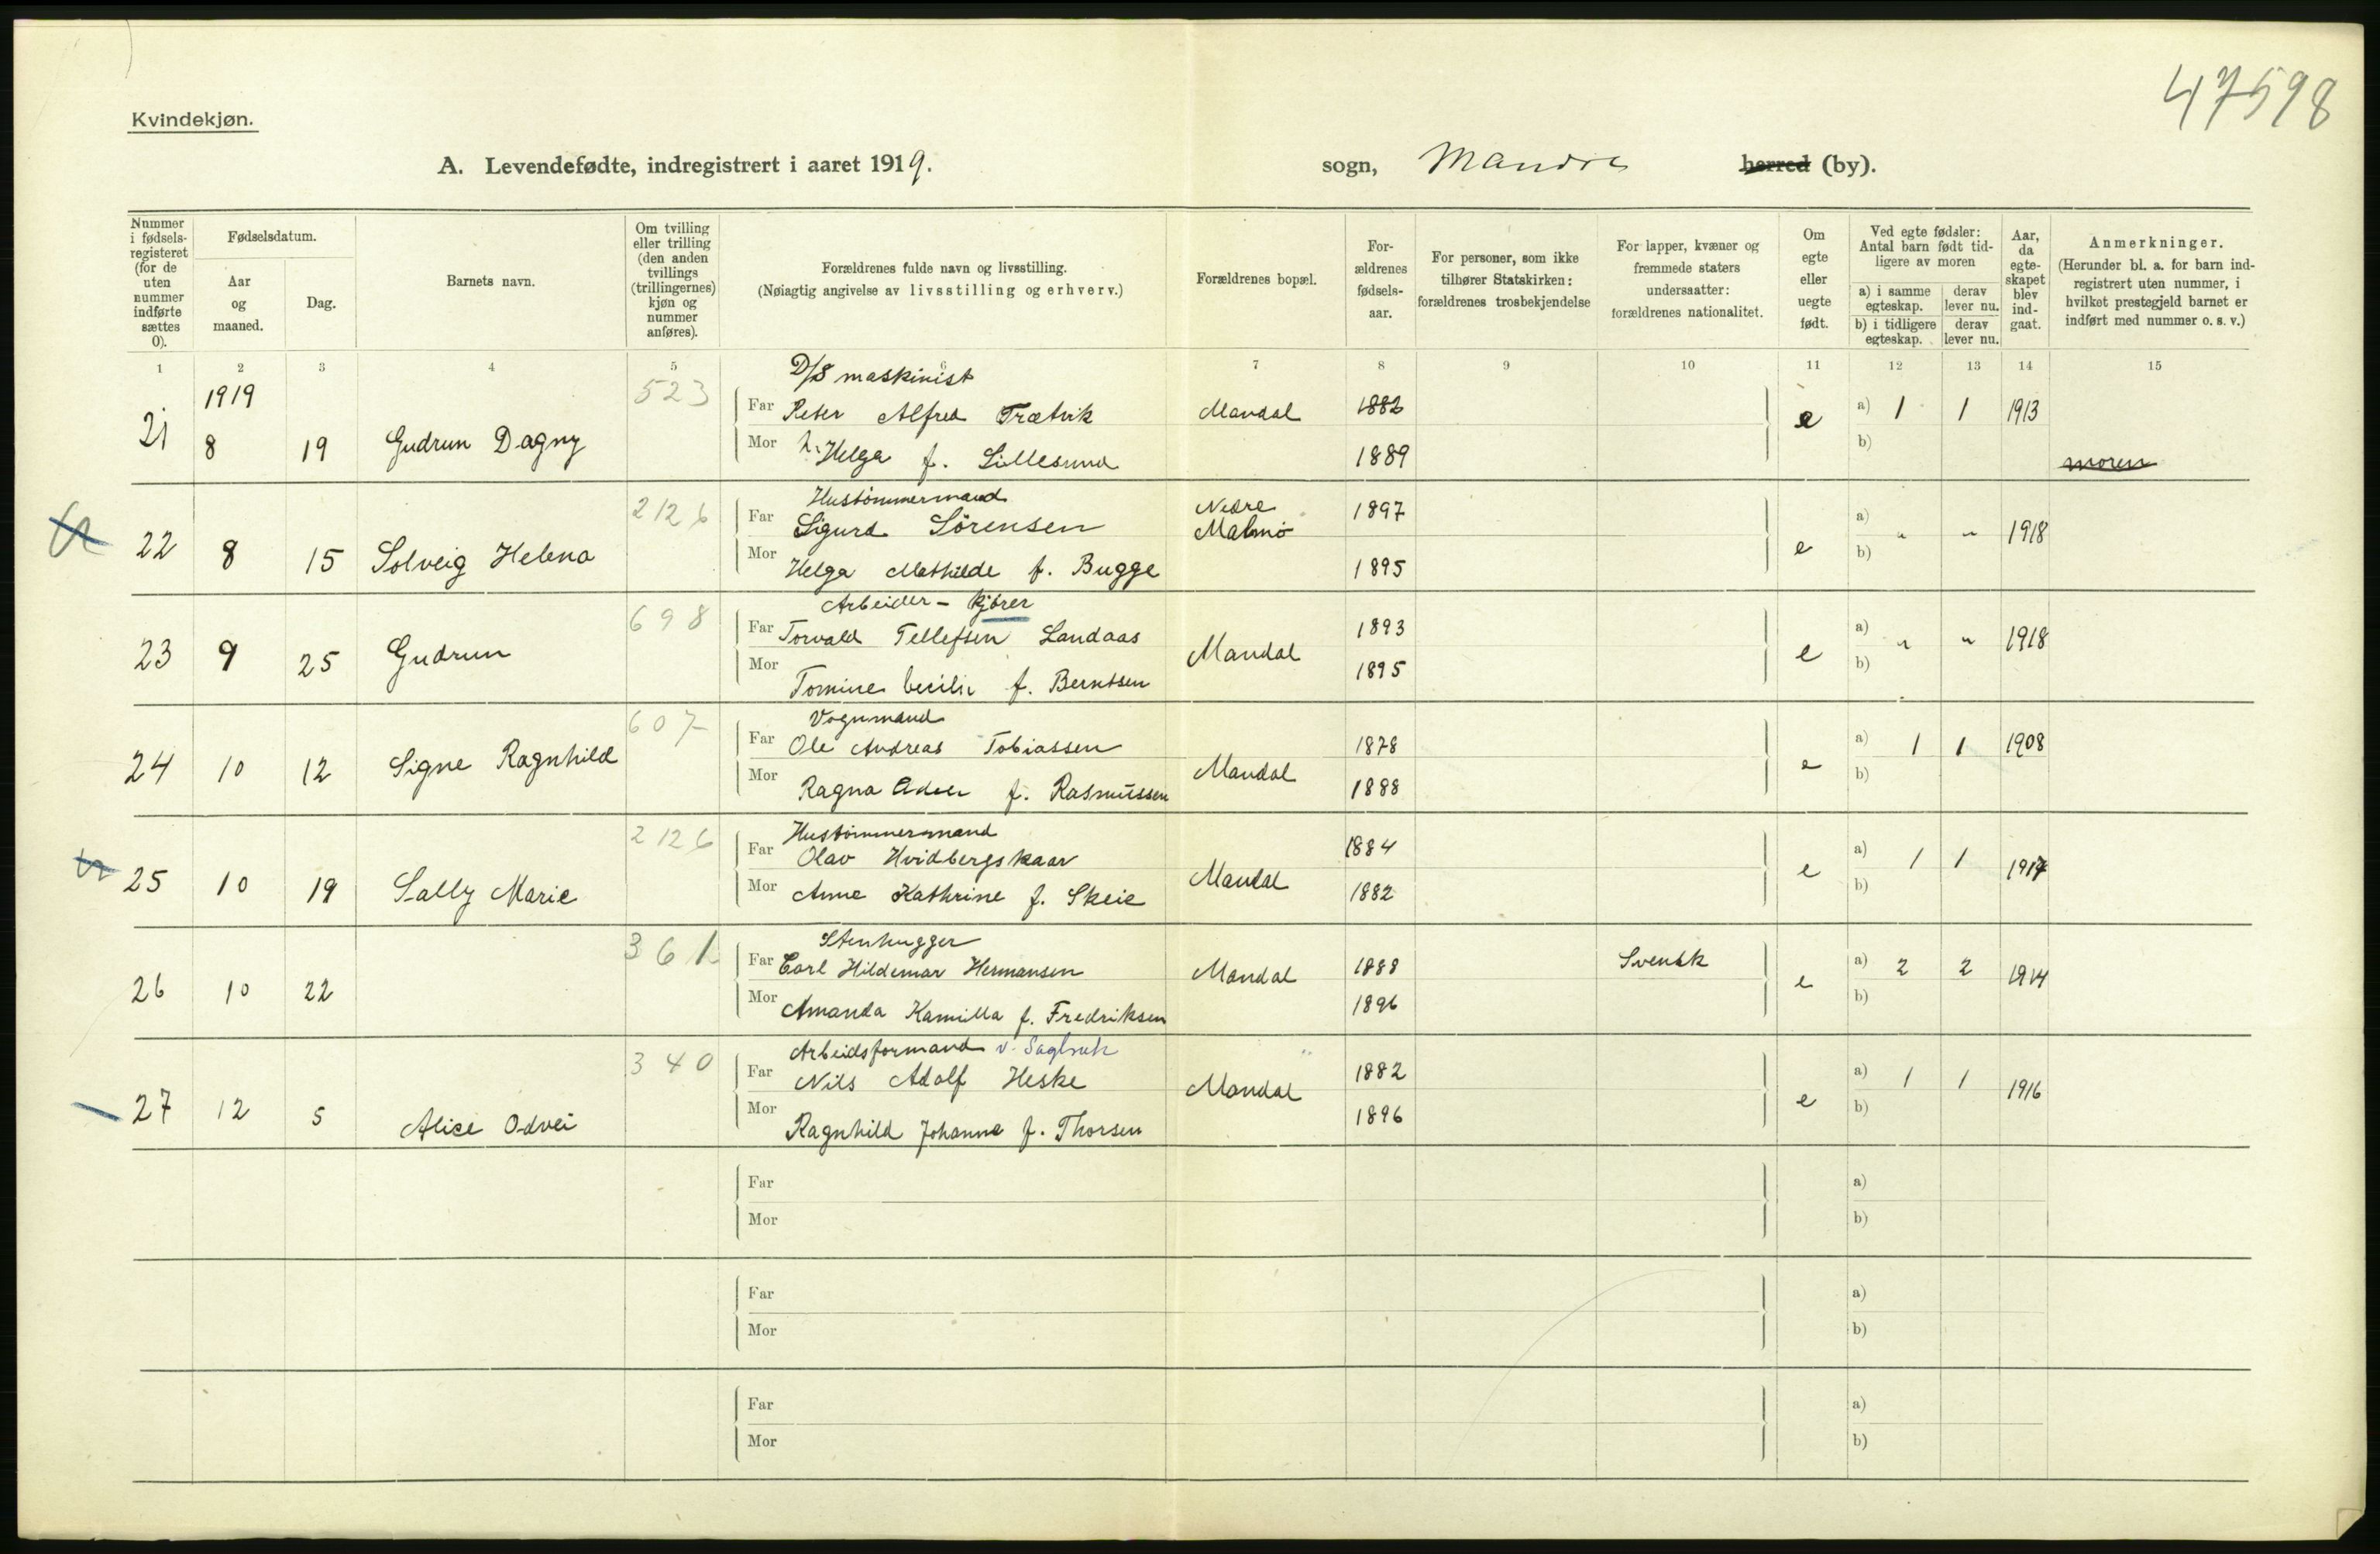 47598
Kvindekjøn.
A. Levendefødte, indregistrert i aaret 1919. sogn, herred (by).
Nummer i fødsels-registeret (for de uten nummer indførte sættes 0).
Fødselsdatum.
Aar og maaned.
Dag.
Barnets navn.
Om tvilling eller trilling (den anden tvillings (trillingernes) kjøn og nummer anføres).
Forældrenes fulde navn og livsstilling.
(Nøiagtig angivelse av livsstilling og erhverv.)
Forældrenes bopæl.
For-ældrenes fødsels-aar.
For personer, som ikke tilhører Statskirken: forældrenes trosbekjendelse
For lapper, kvæner og fremmede staters undersaatter: forældrenes nationalitet.
Om egte eller uegte født.
Ved egte fødsler: Antal barn født tid-ligere av moren
a) i samme egteskap. derav lever nu.
b) i tidligere egteskap. derav lever nu.
Aar, da egte-skapet blev ind-gaat.
Anmerkninger.
(Herunder bl. a. for barn ind-registrert uten nummer, i hvilket prestegjeld barnet er indført med nummer o. s. v.)
1 2 3 4 5 6 7 8 9 10 11 12 13 14 15
1919 523 D/S maskinist
21 8 19 Gudrun Dagny Far Peter Alfred Trætvik Mandal 1882 e a) 1 1 1913
Mor h. Helga f. Lillesund 1889 b) moren
2126 Hustömmermand
22 8 15 Solveig Helena Far Sigurd Sörensen Nedre Malmö 1897 e a) " " 1918
Mor Helga Mathilde f. Bugge 1895 b)
698 Arbeider - kjörer
23 9 25 Gudrun Far Torvald Tellefsen Landaas Mandal 1893 e a) " " 1918
Mor Tomine Cecilie f. Berntsen 1895 b)
607 Vognmand
24 10 12 Signe Ragnhild Far Ole Andreas Tobiassen Mandal 1878 e a) 1 1 1908
Mor Ragna f. Rasmussen 1888 b)
2126 Hustömmermand
25 10 19 Sally Marie Far Olav Hvidbergskaar Mandal 1884 e a) 1 1 1917
Mor Anne Kathrine f. Skeie 1882 b)
361 Stenhugger
26 10 22 Far Carl Hildemar Hermansen Mandal 1888 Svensk e a) 2 2 1914
Mor Amanda Kamilla f. Fredriksen 1896 b)
340 Arbeidsformand v. Sagbruk "
27 12 5 Alice Odvei Far Nils Adolf Heske Mandal 1882 e a) 1 1 1916
Mor Ragnhild Johanne f. Thorsen 1896 b)
Far a)
Mor b)
Far a)
Mor b)
Far a)
Mor b)